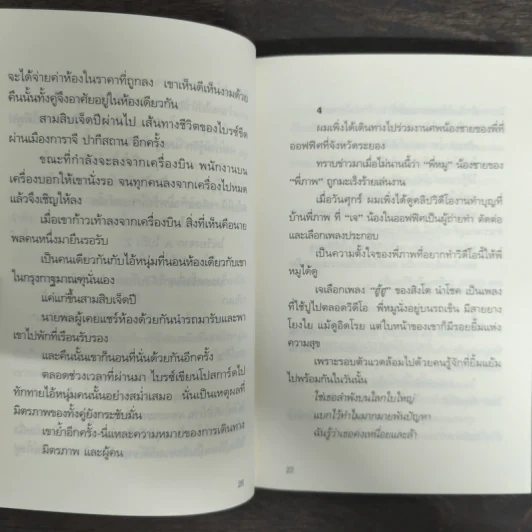 จะได้จ่ายค่าห้องในราคาที่ถูกลง เขาเห็นดีเห็นงามด้วย
คืนนั้นทั้งคู่จึงอาศัยอยู่ในห้องเดียวกัน
สามสิบเจ็ดปีผ่านไป เส้นทางชีวิตของไบรซ์ขีด
ผ่านเมืองการาจี ปากีสถาน อีกครั้ง
ขณะที่กำลังจะลงจากเครื่องบิน พนักงานบน
เครื่องบอกให้เขานั่งรอ จนทุกคนลงจากเครื่องไปหมด
แล้วจึงเชิญให้ลง
เมื่อเขาก้าวเท้าลงจากเครื่องบิน สิ่งที่เห็นคือนาย
พลคนหนึ่งมายืนรอรับ
เป็นคนเดียวกันกับไอ้หนุ่มที่นอนห้องเดียวกับเขา
ในกรุงกาฐมาณฑุนั่นเอง
แค่แก่ขึ้นสามสิบเจ็ดปี
นายพลผู้เคยแชร์ห้องด้วยกันนำรถมารับและพา
เขาไปพักที่เรือนรับรอง
และคืนนั้นเขาก็นอนที่นั่นด้วยกันอีกครั้ง
ตลอดช่วงเวลาที่ผ่านมา ไบรซ์เขียนโปสการ์ดไป
ทักทายไอ้หนุ่มคนนั้นอย่างสม่ำเสมอ นั่นเป็นเหตุผลที่
มิตรภาพของทั้งคู่ยังกระชับมั่น
เขาย้ำอีกครั้ง-นี่แหละความหมายของการเดินทาง
มิตรภาพ และผู้คน
4
ผมเพิ่งได้เดินทางไปร่วมงานศพน้องชายของพี่ที่
ออฟฟิศที่จังหวัดระยอง
ทราบข่าวมาเมื่อไม่นานนี้ว่า "พี่หมู" น้องชายของ
"พี่ภาพ" ถูกมะเร็งร้ายเล่นงาน
เมื่อวันศุกร์ ผมเพิ่งได้ดูคลิปวิดีโองานทำบุญที่
บ้านพี่ภาพ ที่ "เจ" น้องในออฟฟิศเป็นผู้ถ่ายทำ ตัดต่อ
และเลือกเพลงประกอบ
เป็นความตั้งใจของพี่ภาพที่อยากทำวิดีโอนี้ให้พี่
หมูได้ดู
เจเลือกเพลง "สู้สู้" ของสิงโต นำโชค เป็นเพลง
ที่ใช้ปูไปตลอดวิดีโอ พี่หมูนั่งอยู่บนรถเข็น มีสายยาง
โยงใย แม้ดูอิดโรย แต่ใบหน้าของเขาก็มีรอยยิ้มแห่ง
ความสุข
เพราะรอบตัวแวดล้อมไปด้วยคนรู้จักที่ยิ้มแย้ม
ไปพร้อมกันในวันนั้น
ใช่เธอลำพังบนโลกใบใหญ่
แบกไว้ทำไมมากมายพันปัญหา
ฉันรู้ว่าเธอคงเหนื่อยและล้า
22